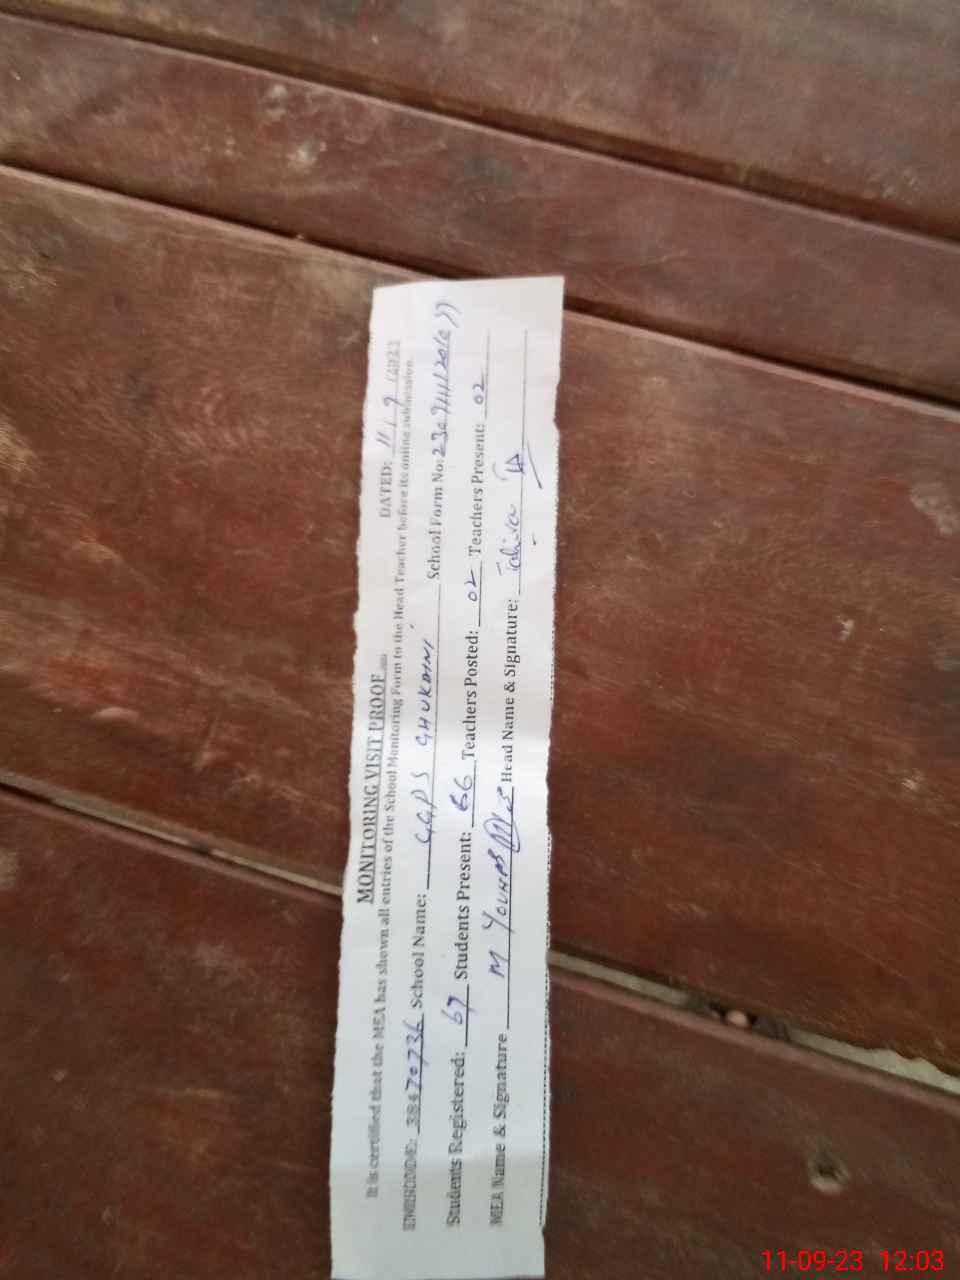 MONITORING VISIT PROOF
DATED: 11/9/2023
It is certified that the MEA has shown all entries of the School Monitoring Form to the Head Teacher before its online submission.
EMISCODE: 38470736 School Name: GGPS GHUKANNI School Form No:
Students Registered: 67 Students Present: 66 Teachers Posted: 02 Teachers Present: 02
MEA Name & Signature M YOUNAS Head Name & Signature: Tahira
11-09-23 12:03